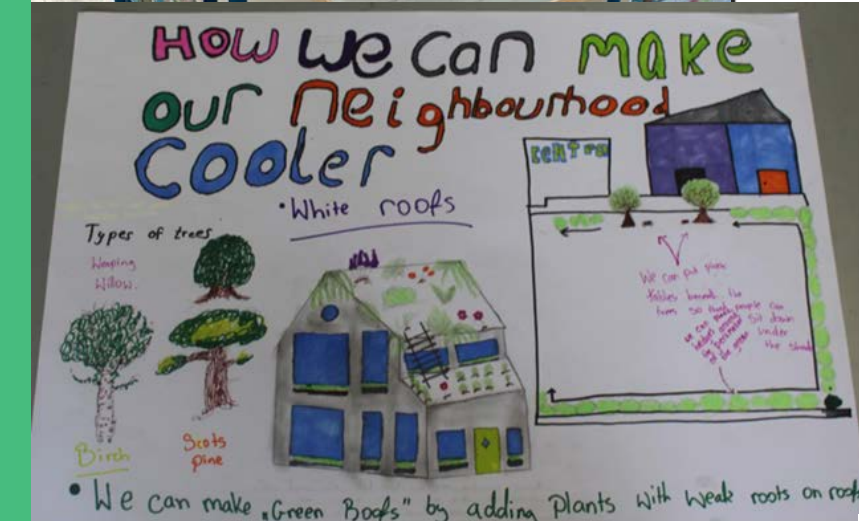 How we can make
our neighbourhood
Cooler
• White roofs
Types of trees
Weeping
Willow
Birch
Scots
pine
We can put
tables
so that people can
sit down
under
the shade
we can
hedges around
the perimeter
of the
• We can make „Green Roofs" by adding Plants with weak roots on roofs